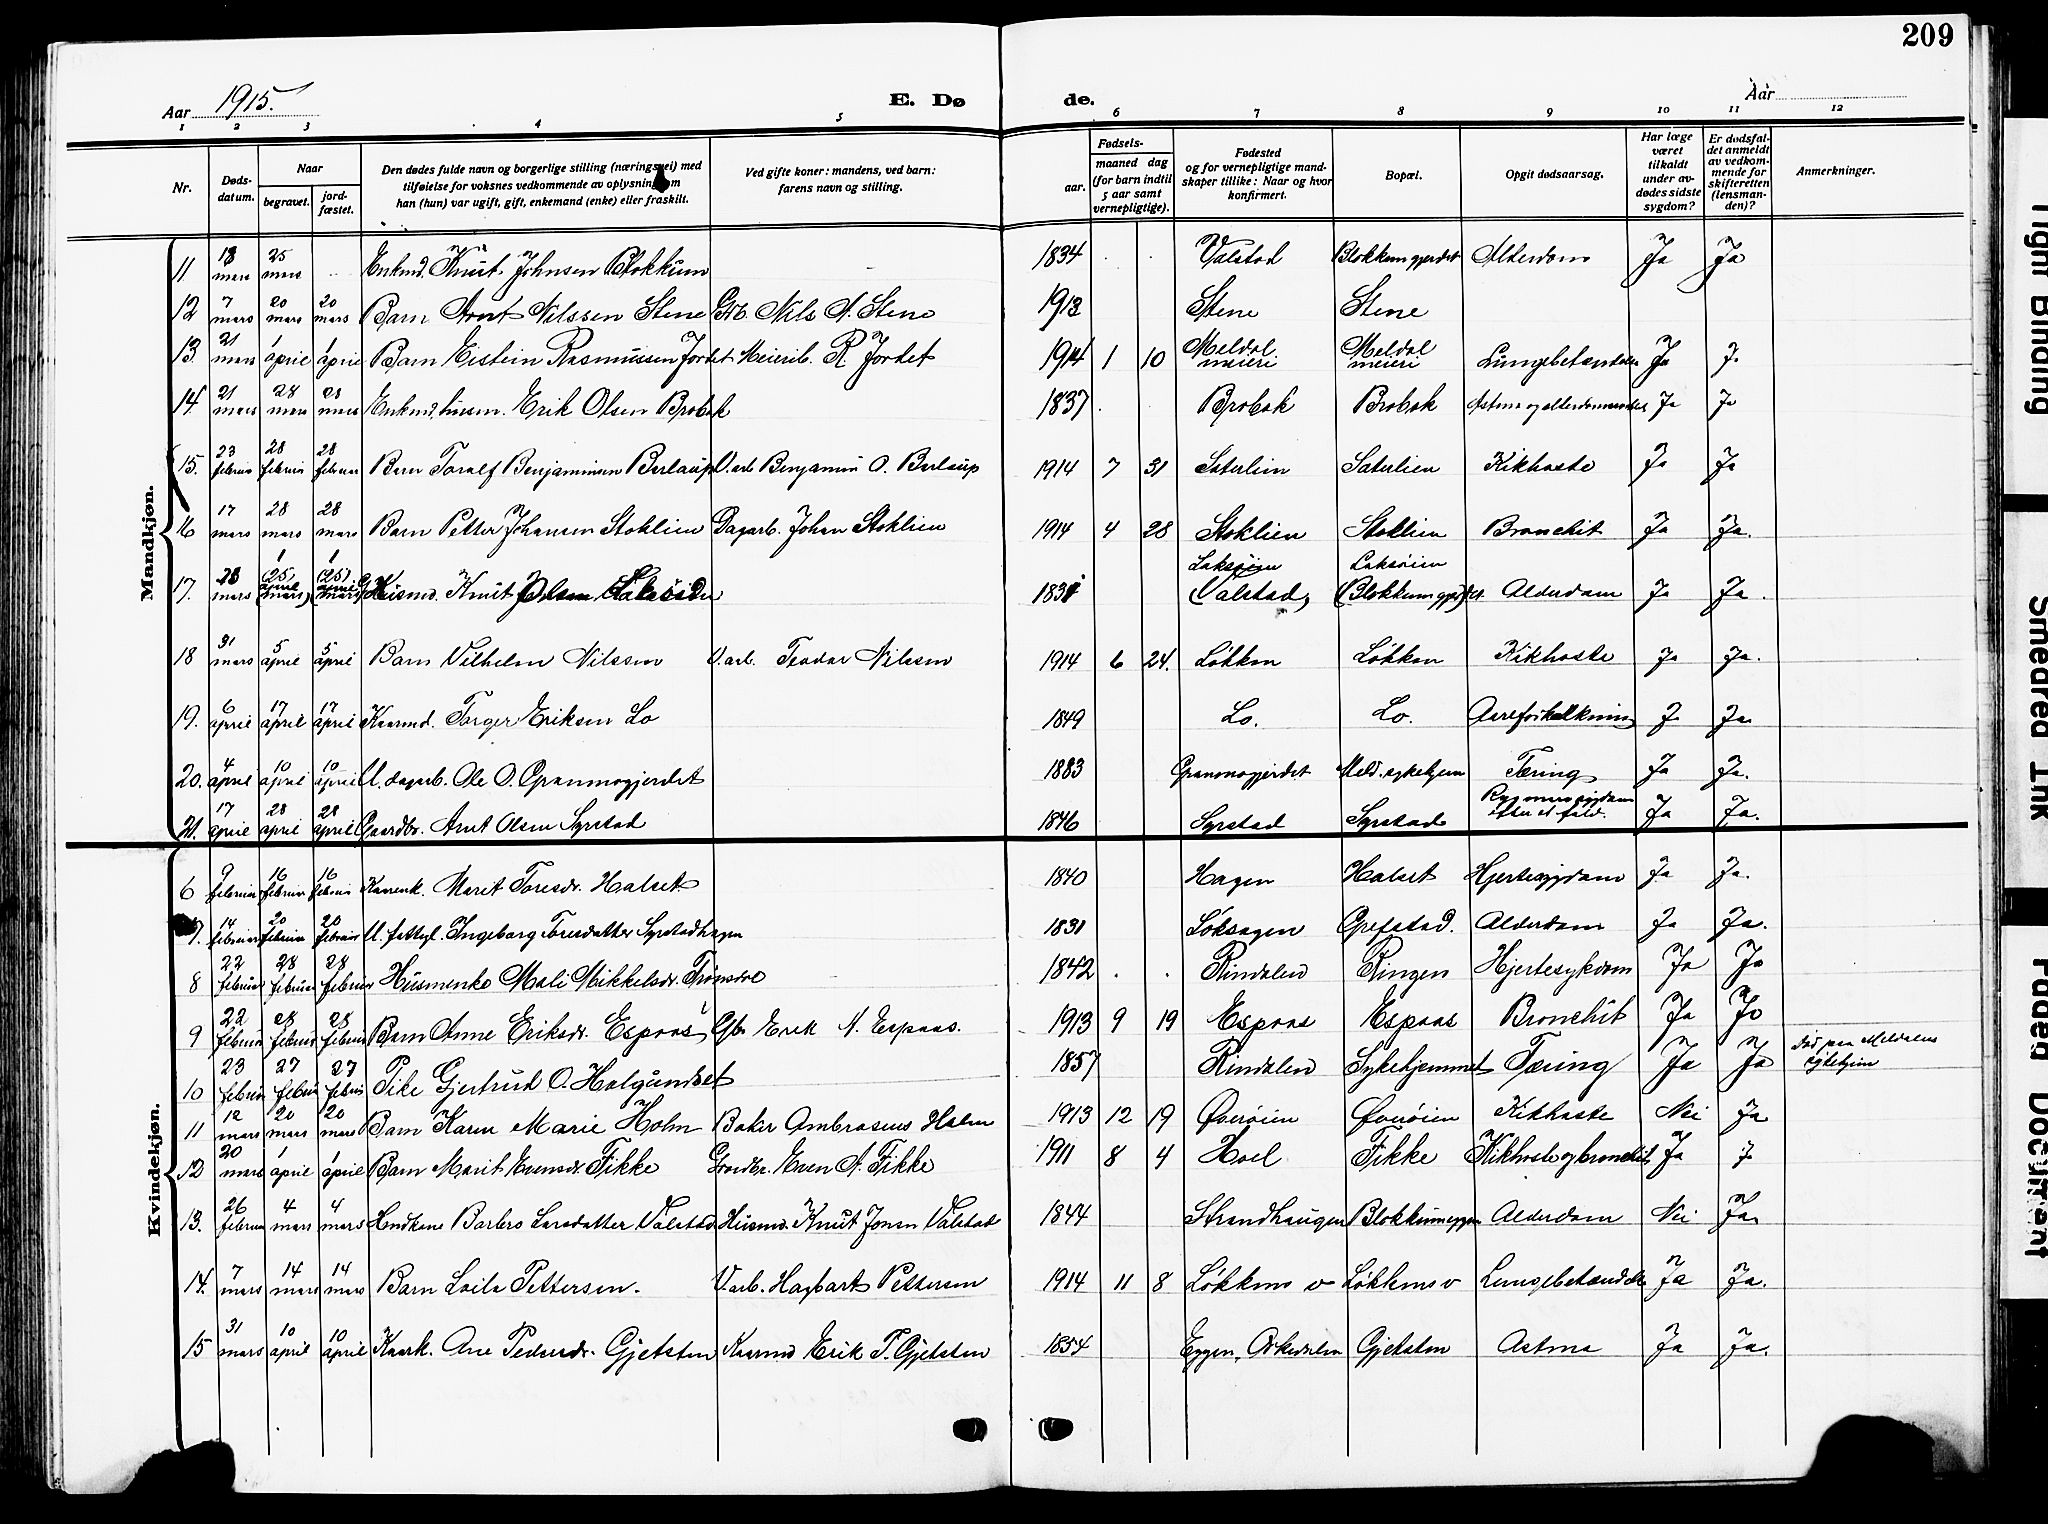 209
Aar 1915.
E. Dø de.
Aar
1 2 3 4 5 6 7 8 9 10 11 12
Nr.
Døds-datum.
Naar
begravet.
jord-fæstet.
Den dødes fulde navn og borgerlige stilling (næringsvei) med
tilføielse for voksnes vedkommende av oplysning om
han (hun) var ugift, gift, enkemand (enke) eller fraskilt.
Ved gifte koner: mandens, ved barn:
farens navn og stilling.
Fødsels-
aar.
maaned dag
(for barn indtil
5 aar samt
vernepligtige).
Fødested
og for vernepligtige mand-
skaper tillike: Naar og hvor
konfirmert.
Bopæl.
Opgit dødsaarsag.
Har læge
været
tilkaldt
under av-
dødes sidste
sygdom?
Er dødsfal-
det anmeldt
av vedkom-
mende for
skifteretten
(lensman-
den)?
Anmerkninger.
Mandkjøn.
11 18 mars 25 mars Enkmd. Knut Johnsen Blokkum 1834 Valstad Blokkumgjerdet Alderdom Ja Ja
12 7 mars 20 mars 20 mars Barn Arnt Nilssen Stene Grb. Nils A. Stene 1913 Stene Stene
13. 21 mars 1 april 1 april Barn Eistein Rasmussen Jordet Meierib. R. Jordet 1914 1 10 Meldal meieri Meldal meieri Lungebetændelse Ja J.
14. 21 mars 28 mars 28 mars Enkmd. husm. Erik Olsen Brobak 1837 Brobak Brobak Astma og alderdom Ja Ja
15. 23 februar 28 februar 28 februar Barn Toralf Benjaminsen Berlaup V.arb Benjamin O. Berlaup 1914 7 31 Sæterlien Sæterlien Kikhoste Ja Ja
16 17 mars 28 mars 28 mars Barn Petter Johansen Stoklien Dagarb. Johan Stoklien 1914 4 28 Stoklien Stoklien Bronchit Ja Ja.
17. mars 1 april (25 mars) 1 april (25 mars) Husmd. Knut Laksøien (Valstad) Laksøien (Blokkumgjerdet Alderdom Ja Ja.
18 31 mars 5 april 5 april Barn Vilhelm Nilssen V.arb. Teodor Nilssen 1914 6 24. Løkken Løkken Kikhoste Ja Ja.
19. 6 april 17 april 17 april Kaarmd. Torger Eriksen Lo 1849 Lo. Lo. Aareforkalkning J Ja.
20. 4 april 10 april 10 april U. dagarb. Ole O. Granmogjerdet 1883 Granmogjerdet Meld. sykehjem Tæring Ja Ja.
21. 17 april 28 april 28 april Gaardbr. Arnt Olsen Syrstad 1846 Syrstad Syrstad Rygmarvsygdom efter et fald. Ja Ja.
Kvindekjøn.
6 9 februar 16 februar 16 februar Kaarenk. Marit Toresdr. Halset 1840 Hagen Halset Hjertesygdom Ja Ja.
7. 14 februar 20 februar 20 februar U. fattigl. Ingeborg Toresdatter Syrstadhagen 1831 Grefstad. Alderdom Ja Ja.
8 22 februar 28 februar 28 februar Husmenke Mali Mikkelsdr. 1842 Rindalen Ringen Hjertesykdom Ja Ja
9 22 februar 28 februar 28 februar Barn Anne Eriksdr. Espaas Gbr. Erik A. Espaas. 1913 9 19 Espaas Espaas Bronchit Ja Ja
10 23 februar 27 februar 27 februar Pike Gjertrud O. Holgundset 1857 Rindalen Sykehjemmet Tæring Ja Ja død paa Meldalens sykehjem
11 12 mars 20 mars 20 mars Barn Karen Marie Holm Baker Ambrosius Holm 1913 12 19 Øverøien Øverøien Kikhoste Nei Ja
12 20 mars 1 april 1 april Barn Marit Evensdr. Fikke Grdbr. Even A. Fikke 1911 8 4 Hoel Fikke Kikhoste og bronchit Ja J
13. 26 februar 4 mars 4 mars Barbro Larsdatter Valstad Husmd. Knut Jonsn Valstad 1844 Strandhaugen Blokkumeggen Alderdom Nei Ja.
14. 7 mars 14 mars 14 mars Barn Laila Pettersen. V.arb. Hagbart Pettersen 1914 11 8 Løkkens v Løkkens v Lungebetændelse Ja Ja.
15 31 mars 10 april 10 april Kaark. Ane Pedersdr. Gjetsten Kaarmd Erik P. Gjetsten 1854 Eggen, Orkedalen Gjetsten Astma Ja Ja.
Tight Binding
Smeared Ink
Faded Document